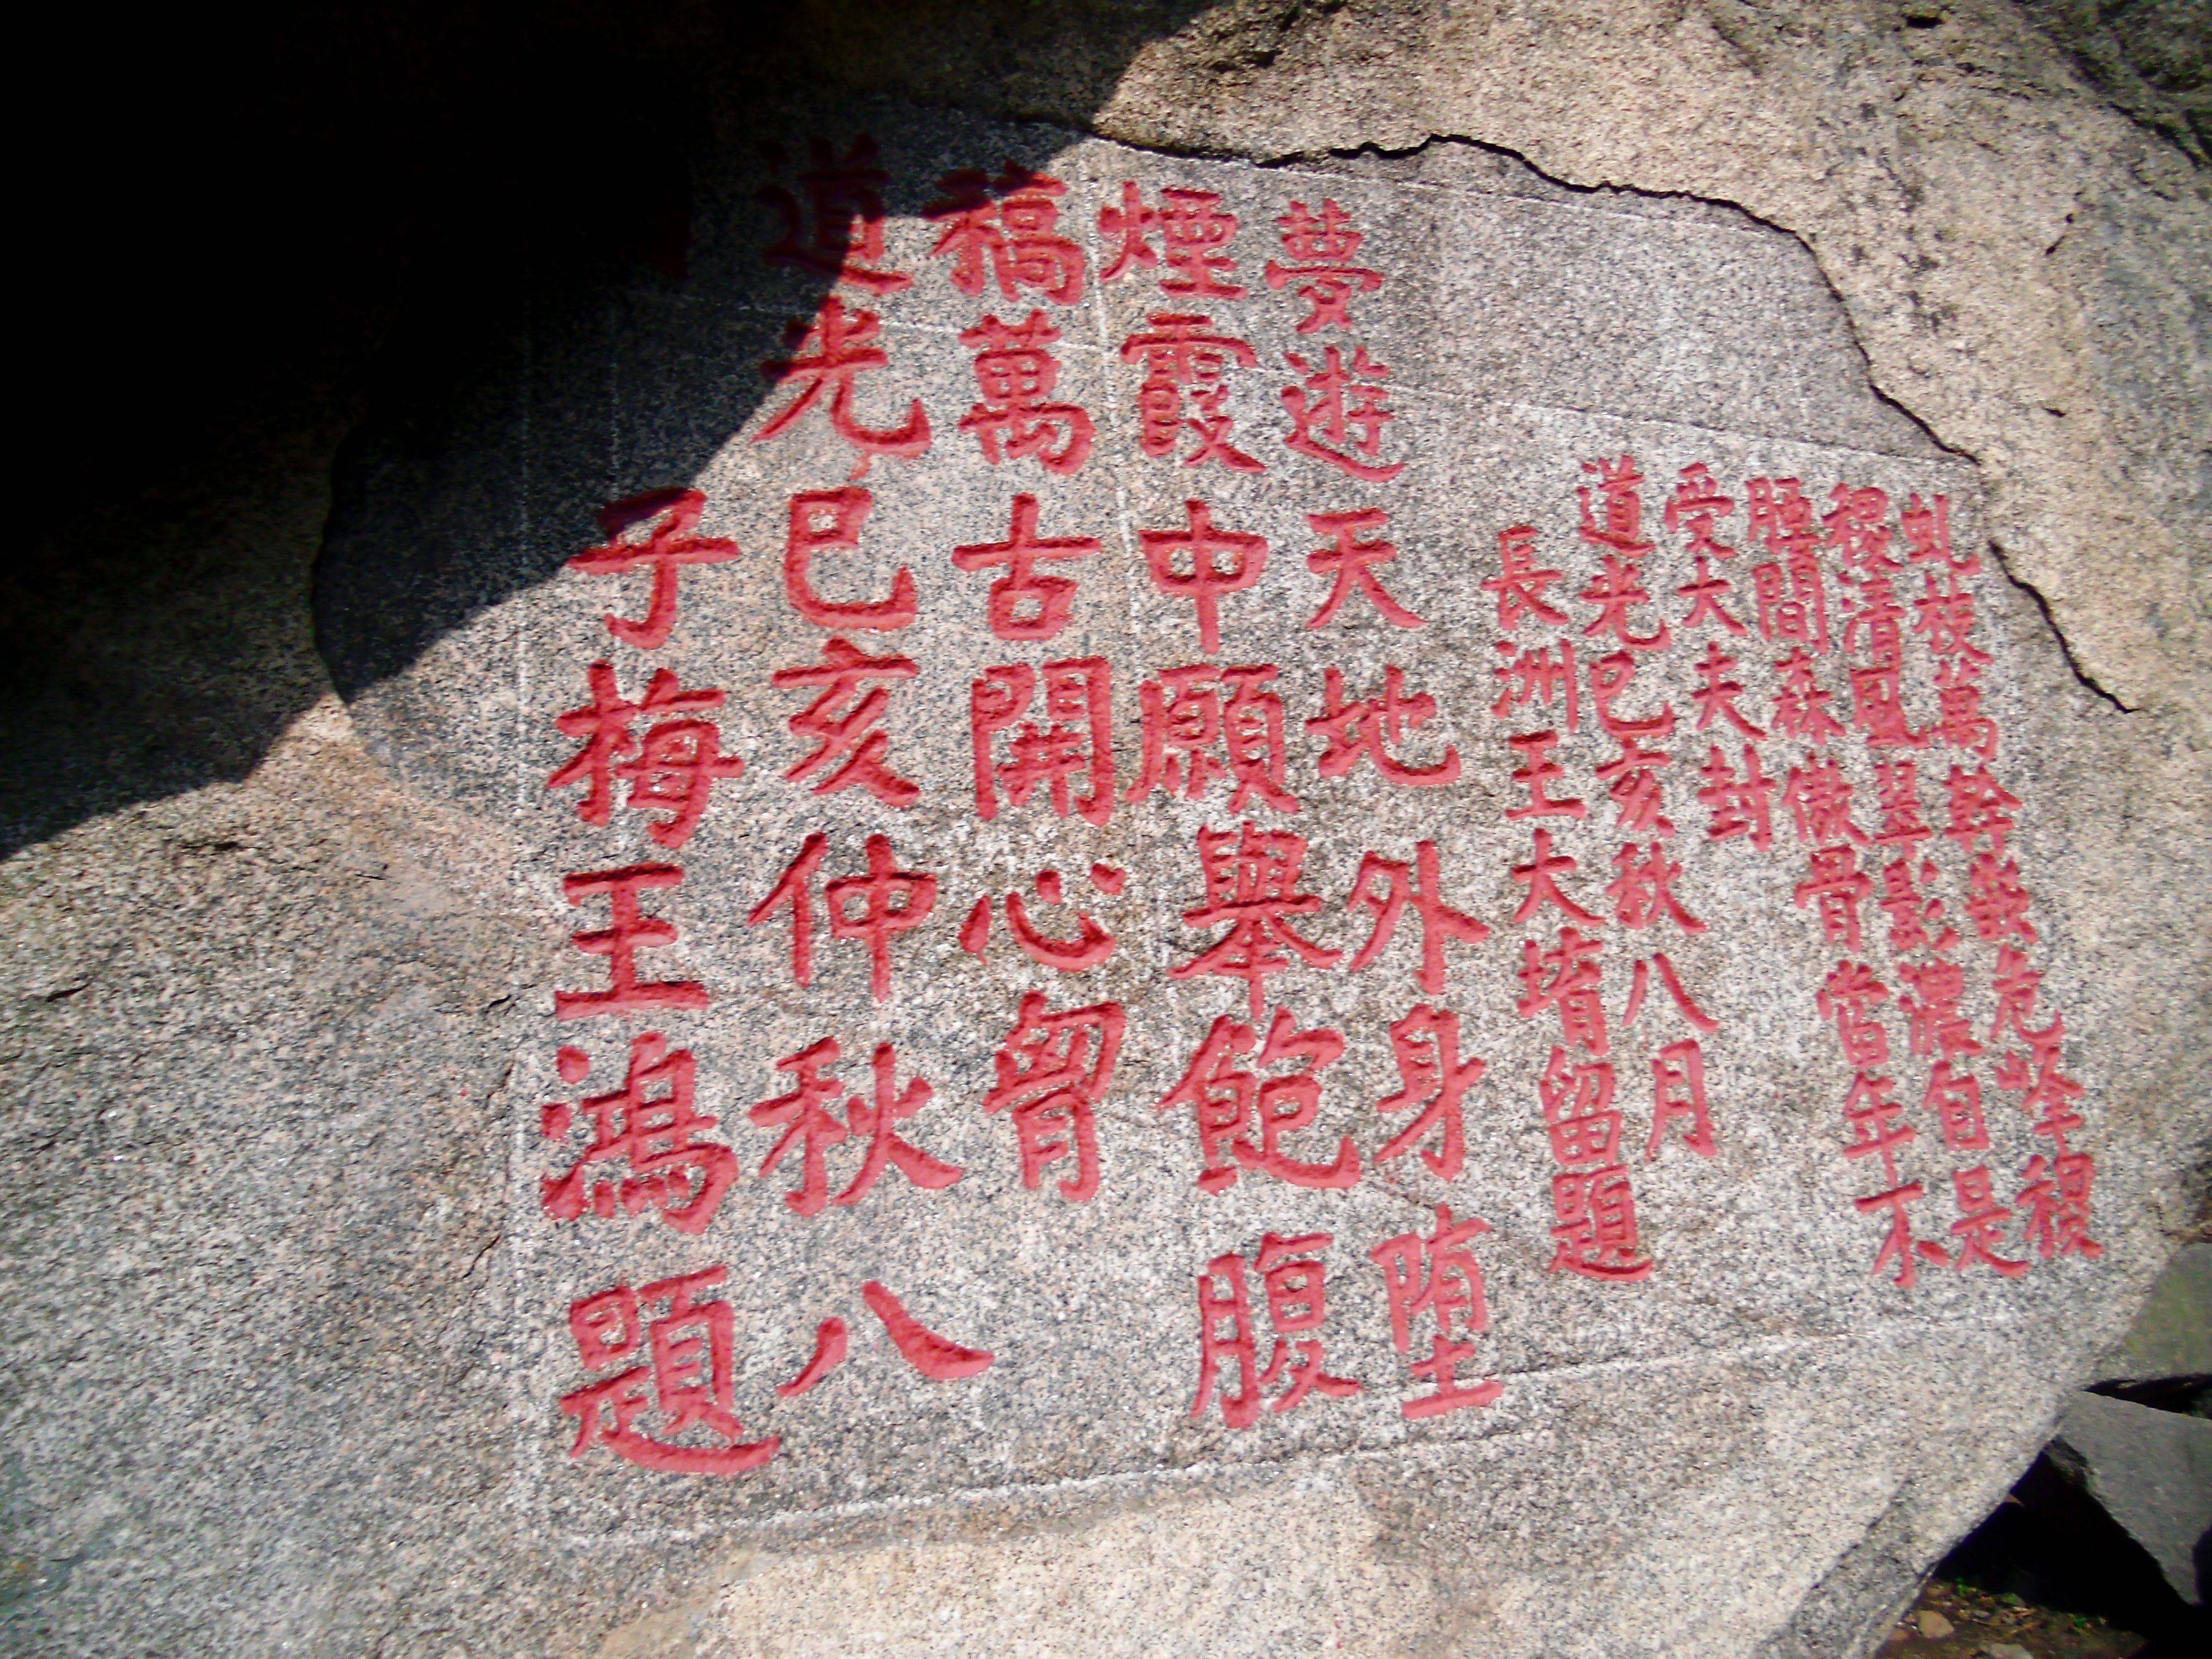 虬枝萬幹危峰稷
稷清風翠影濃自是
胸間森傲骨當年不
受大夫封
道光已亥秋八月
長洲王大堉留題
夢遊天地外身堕
煙霞中願舉飽腹
稿萬古開心胷
道光已亥仲秋八
子梅王鴻題